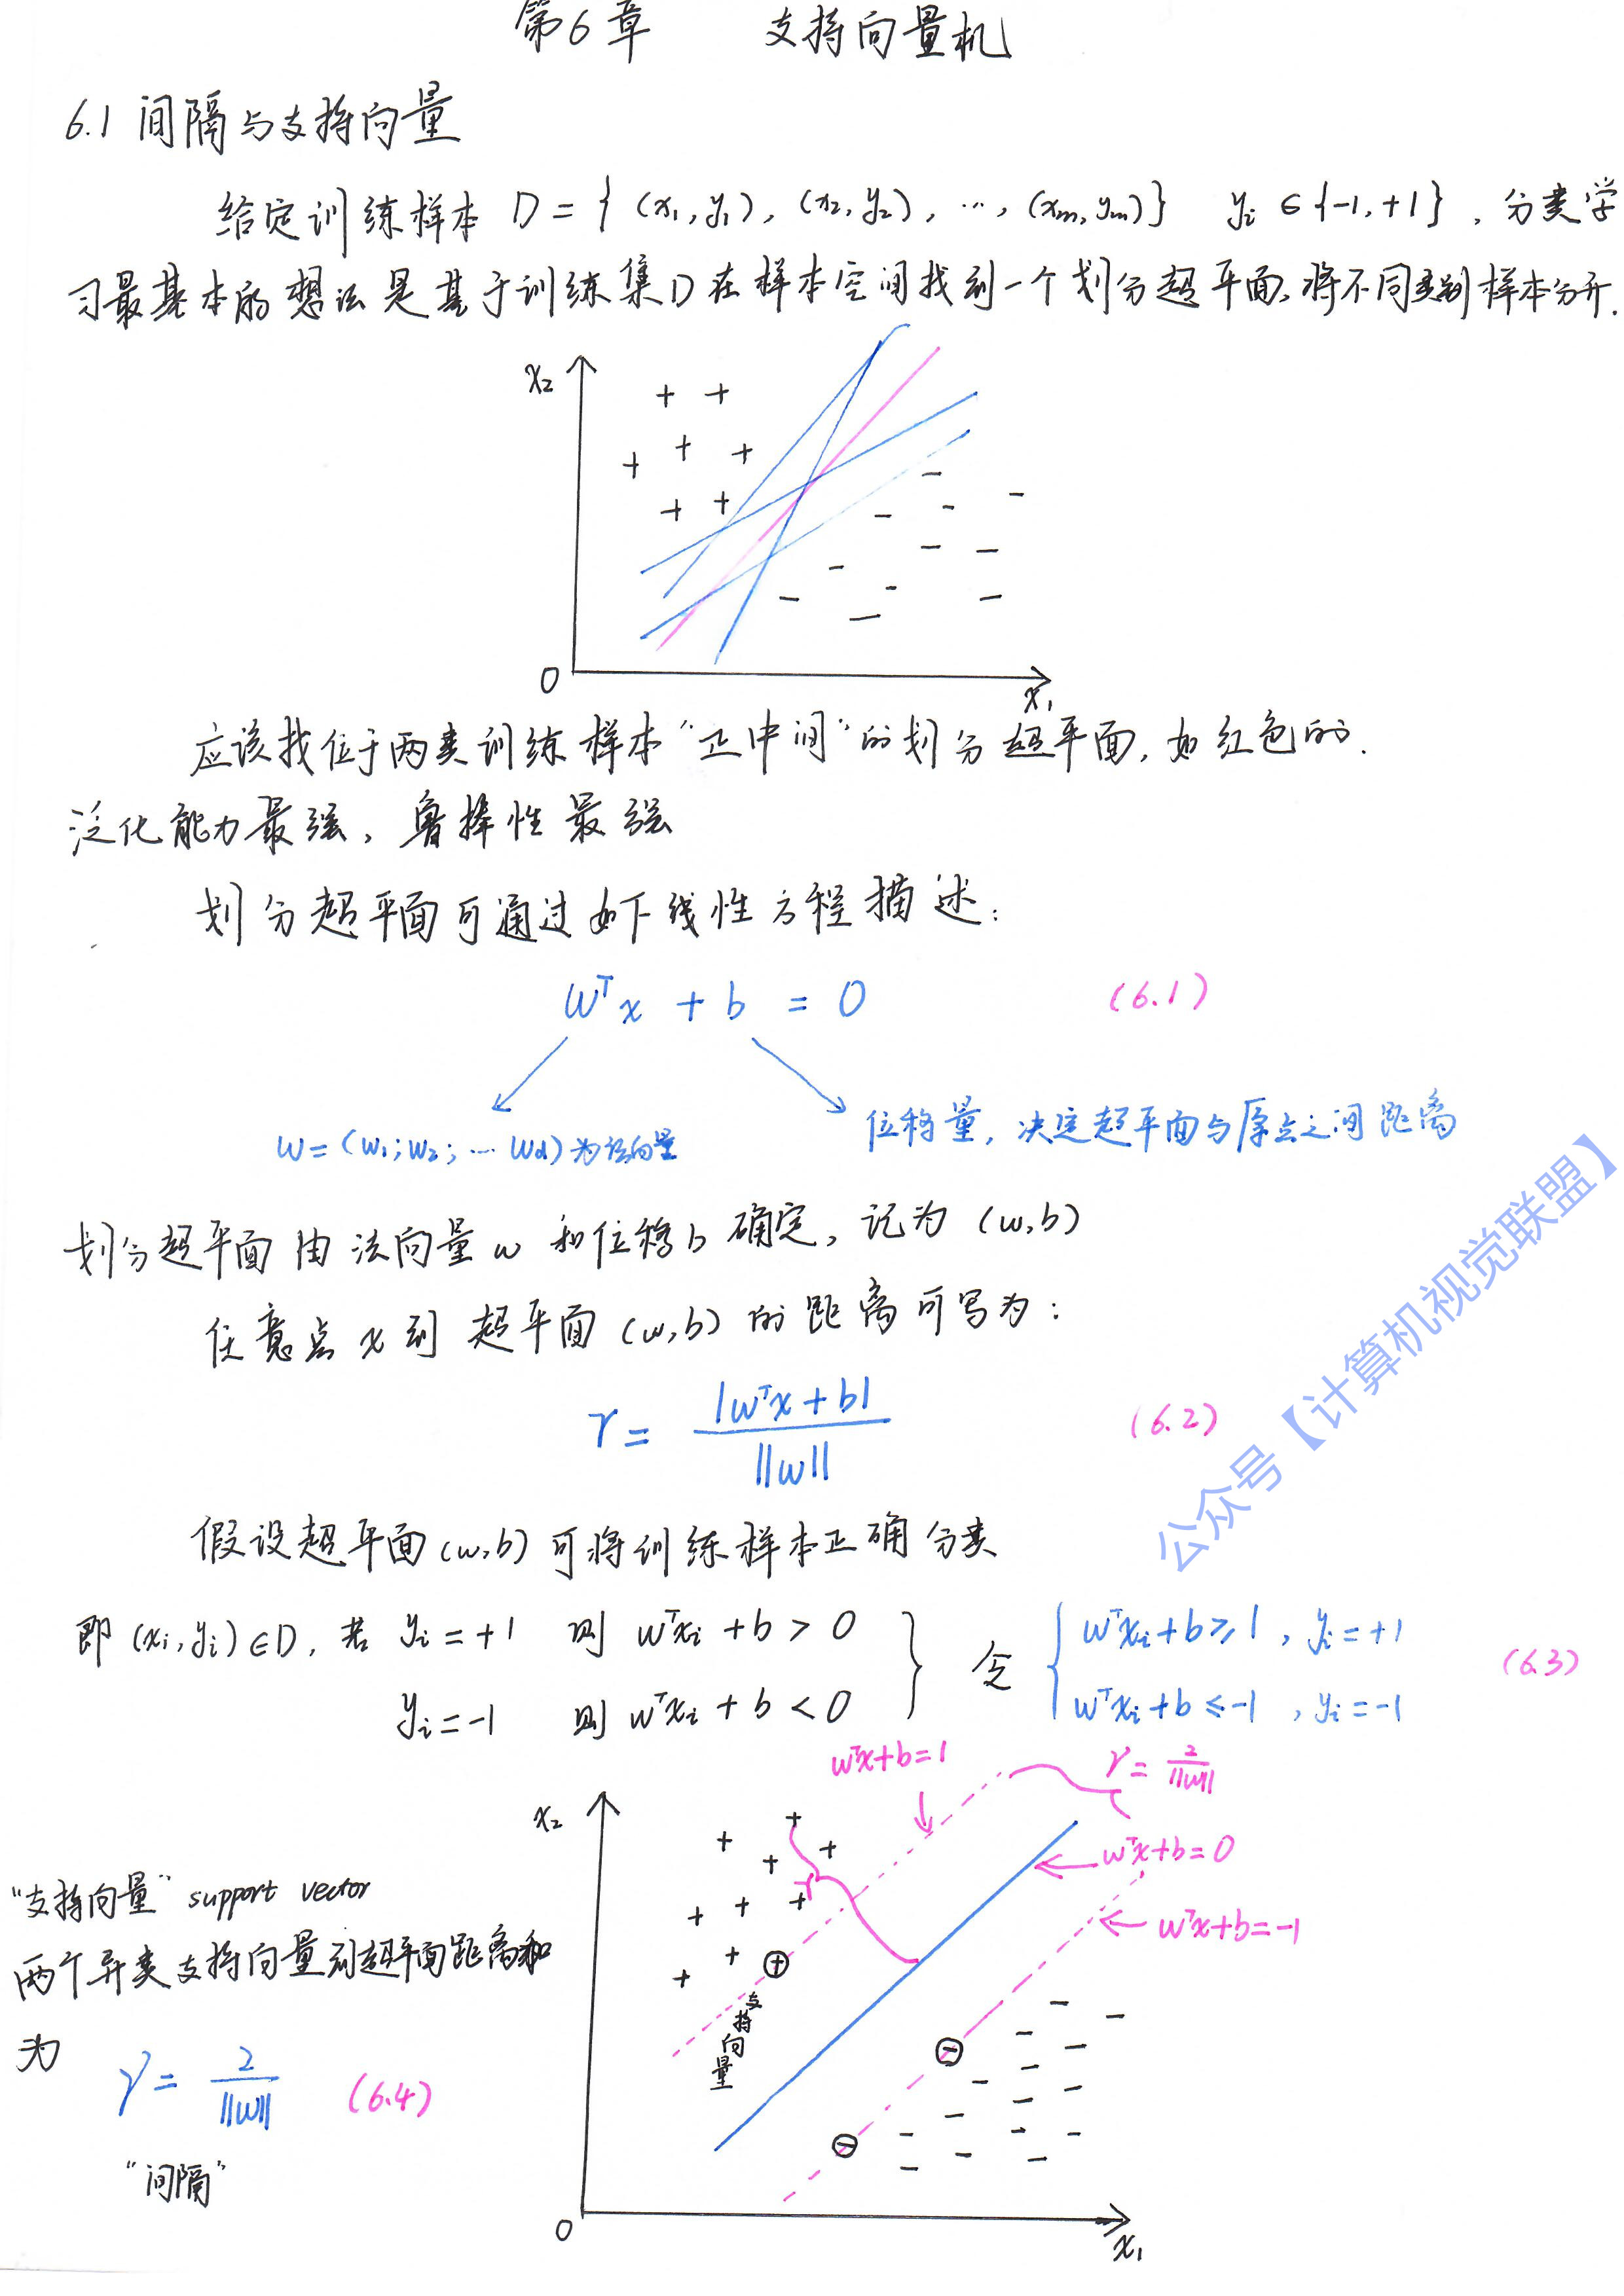 第6章 支持向量机
6.1 间隔与支持向量
给定训练样本 D = { (x₁, y₁), (x₂, y₂), …, (xₘ, yₘ)} yᵢ ∈ {-1, +1}, 分类学
习最基本的想法是基于训练集D在样本空间找到一个划分超平面,将不同类别样本分开.
x₂
0
x₁
应该找位于两类训练样本“正中间”的划分超平面, 如红色的.
泛化能力最强, 鲁棒性最强
划分超平面可通过如下线性方程描述:
wᵀx + b = 0 (6.1)
w = (w₁; w₂; … wd) 为法向量
位移量, 决定超平面与原点之间距离
划分超平面由法向量w和位移b确定, 记为 (w, b)
任意点x到超平面 (w, b) 的距离可写为:
r = |wᵀx + b| / ||w|| (6.2)
假设超平面 (w, b) 可将训练样本正确分类
即 (xᵢ, yᵢ) ∈ D, 若 yᵢ = +1 则 wᵀxᵢ + b > 0
yᵢ = -1 则 wᵀxᵢ + b < 0
令
wᵀxᵢ + b ≥ 1, yᵢ = +1
wᵀxᵢ + b ≤ -1, yᵢ = -1
(6.3)
wᵀx + b = 1
γ = 2 / ||w||
x₂
wᵀx + b = 0
r
wᵀx + b = -1
支持向量
0
x₁
“支持向量” support vector
两个异类支持向量到超平面距离和
为
γ = 2 / ||w|| (6.4)
“间隔”
公众号【计算机视觉联盟】